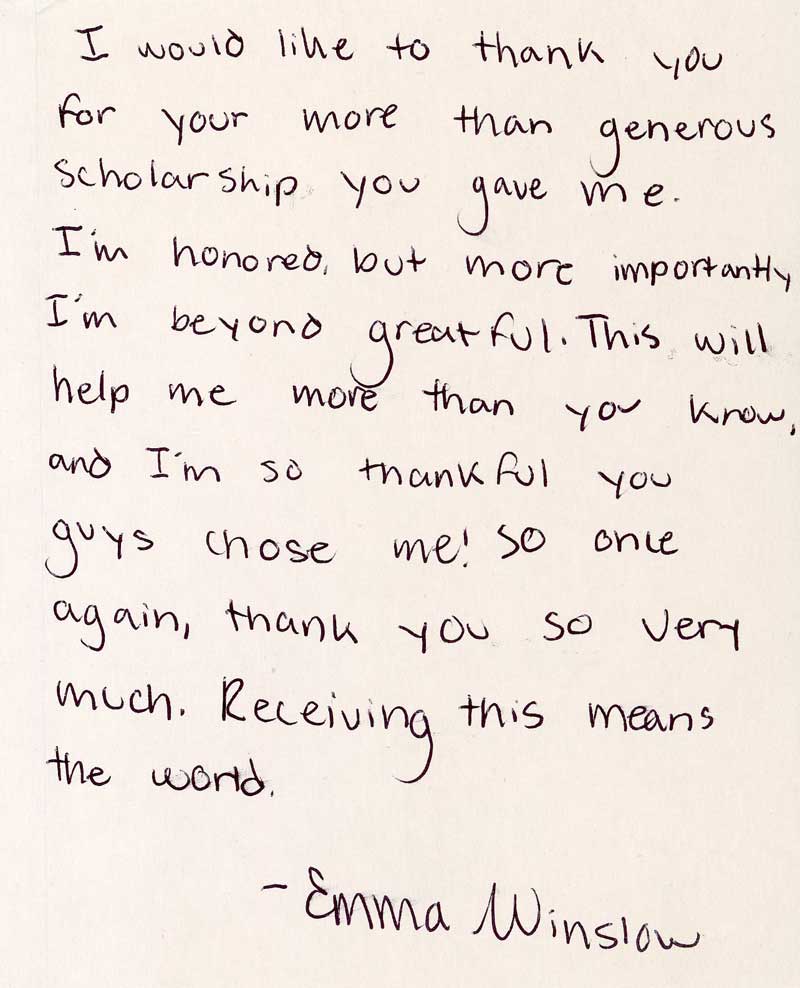 I would like to thank you
for your more than generous
scholarship you gave me.
I'm honored, but more importantly
I'm beyond greatful. This will
help me more than you know,
and I'm so thankful you
guys chose me! So once
again, thank you so very
much. Receiving this means
the world.
- Emma Winslow